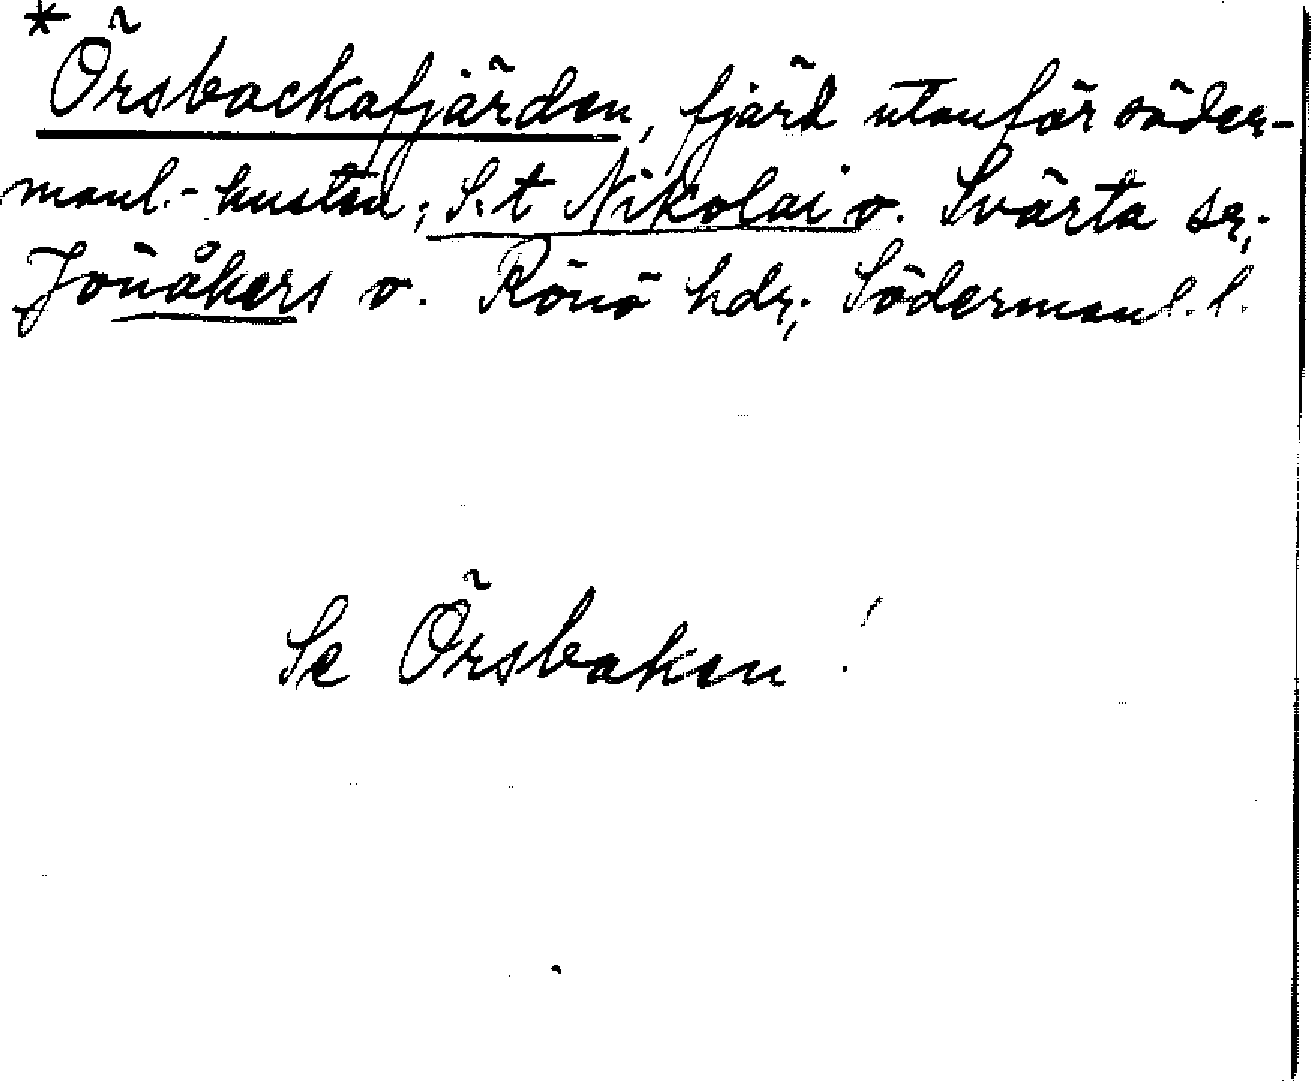 *Örsbackafjärden, fjärd utanför söder-
manl.-kusten; S:t Nikolai o. Svärta sr;
Jönåkers o. Rönö hdr; Södermanl. l.
Se Örsbaken!